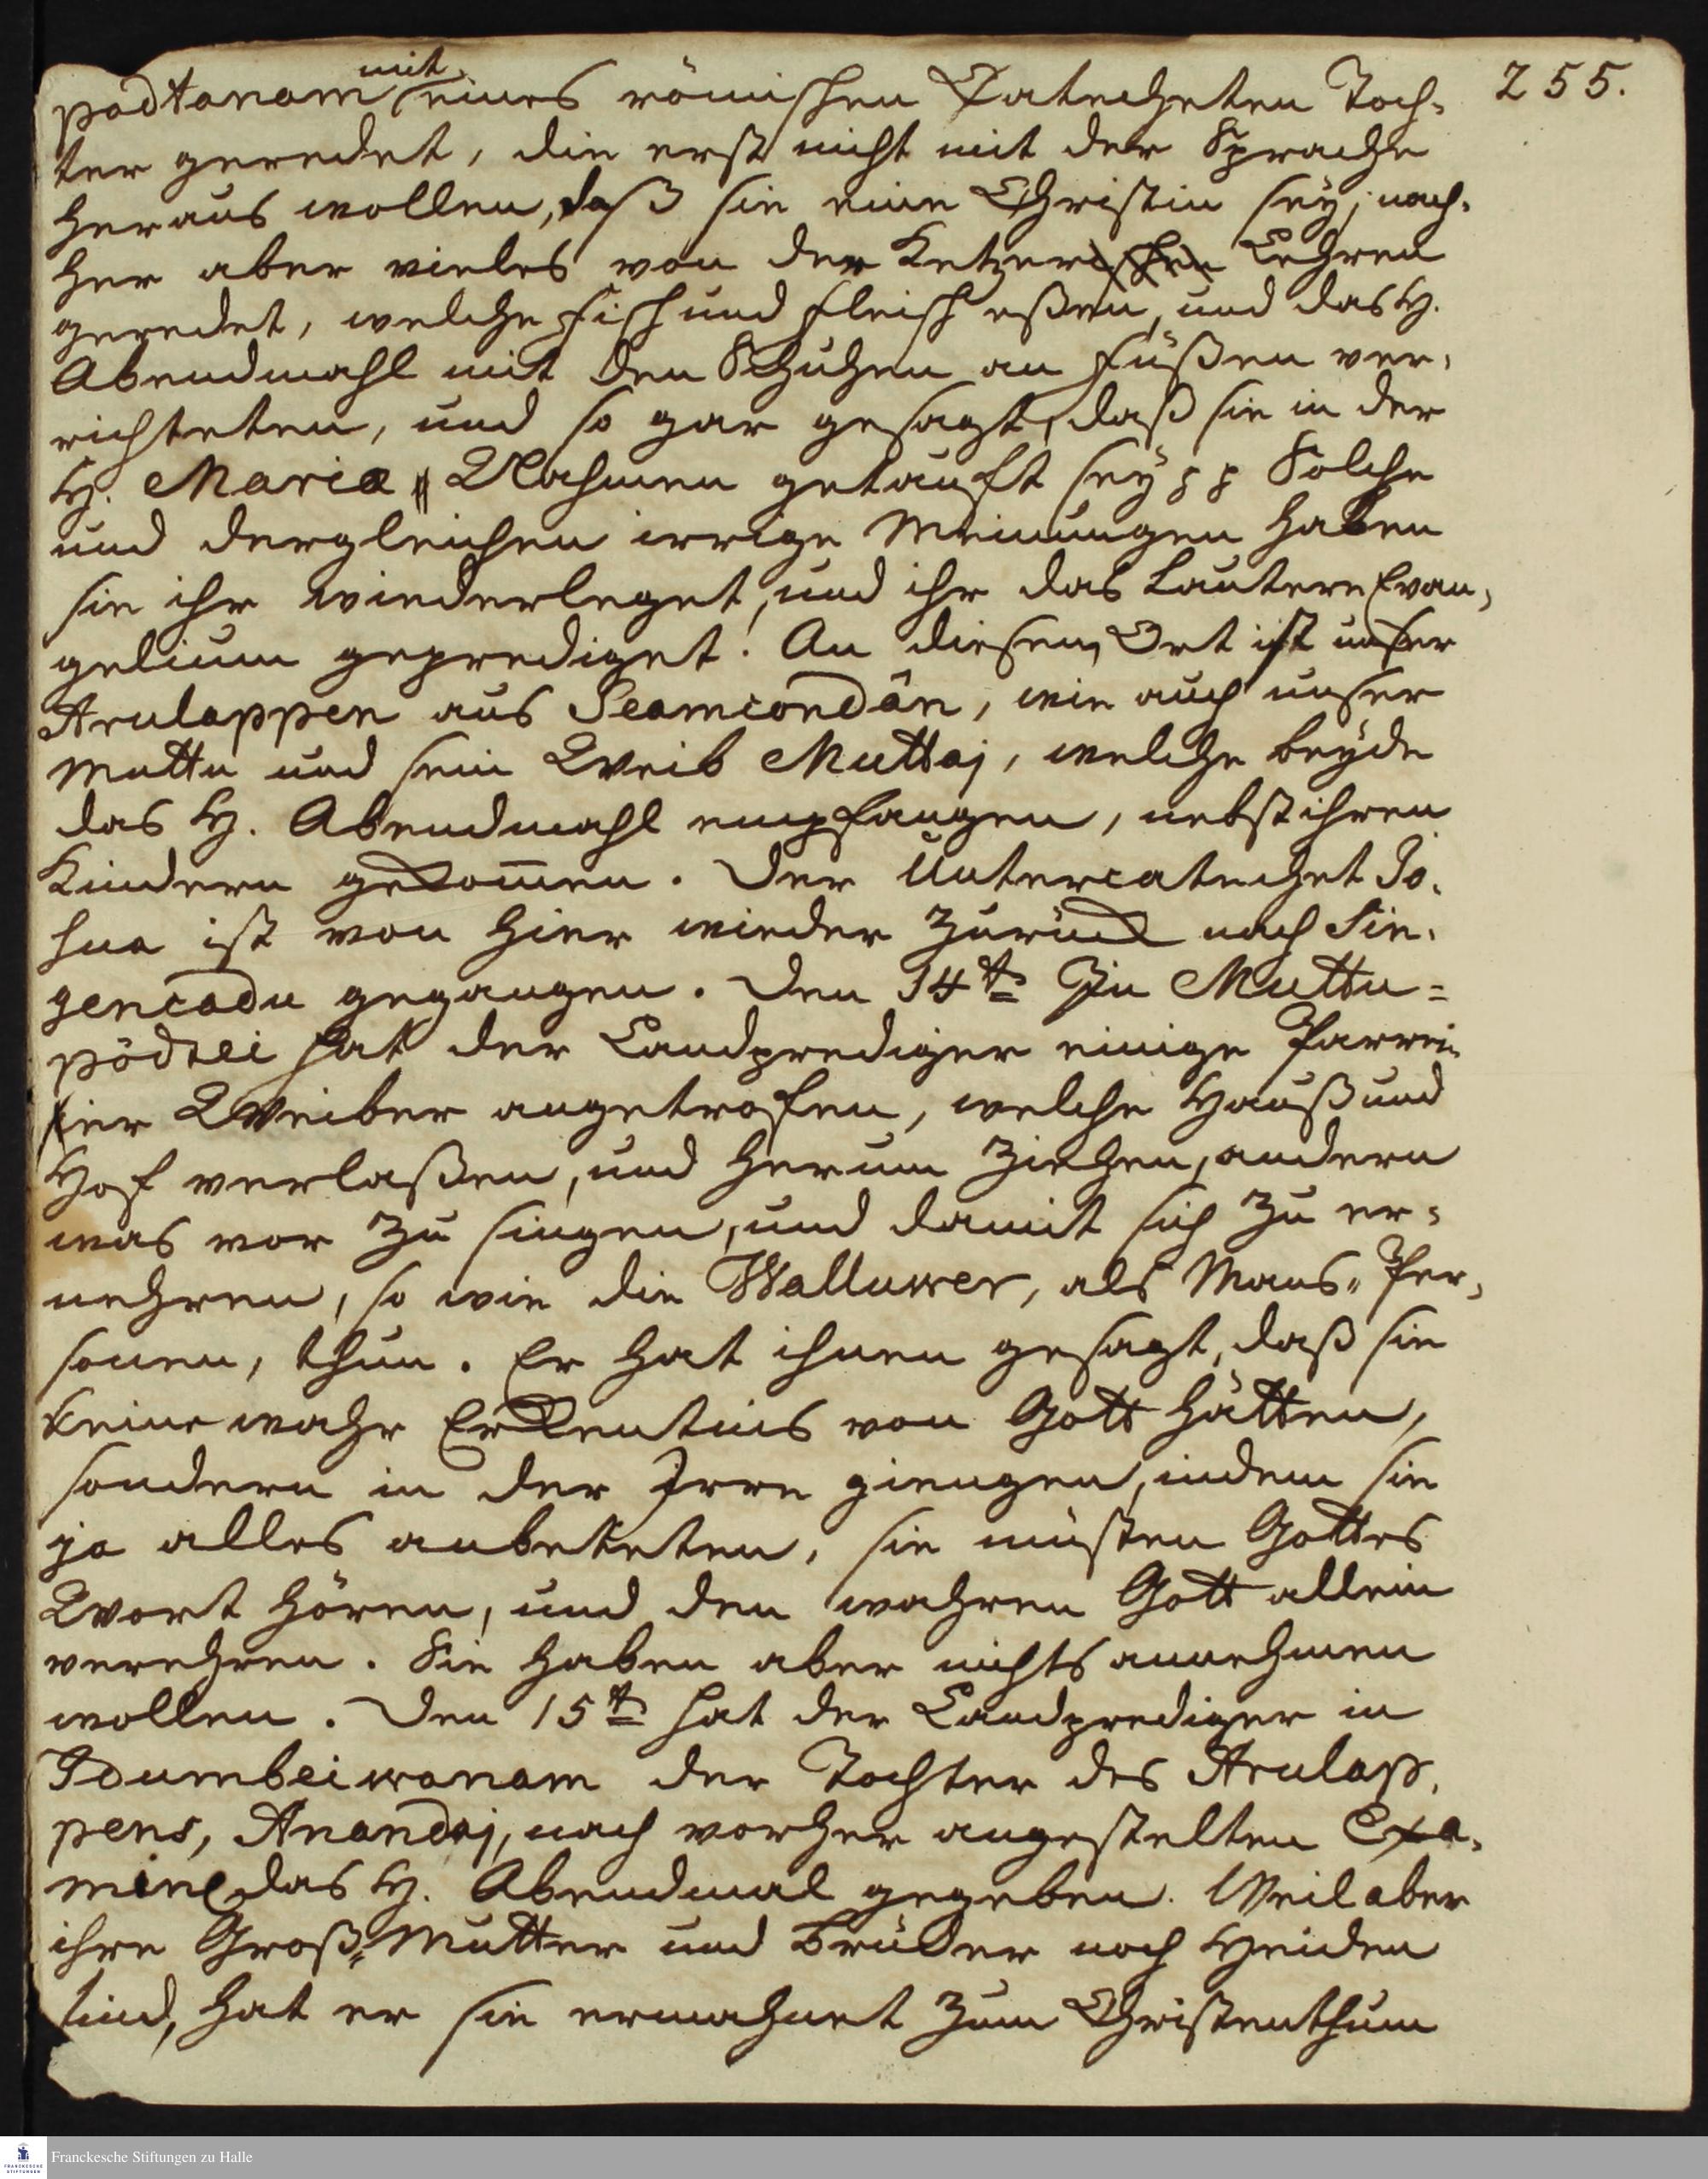 255.
podtanam mit eines römischen Catecheten Toch-
ter geredet, die erst nicht mit der Sprache
heraus wollen, daß sie eine Christin sey; nach-
her aber vieles von der Ketzerischen Lehren
geredet, welche Fisch und Fleisch eßen, und das H.
Abendmahl mit den Schuhen an Füßen ver-
richteten, und so gar gesagt, daß sie in der
H. Maria Nahmen getauft sey pp Solche
und dergleichen irrige Meinungen haben
sie ihr wiederleget, und ihr das lautere Evan-
gelium geprediget. An diesem Ort ist unser
Arulappen aus Seamcondân, wie auch unser
Muttu und sein Weib Muttaj, welche beyde
das H. Abendmahl empfangen, nebst ihren
Kindern gekom̄en. Der Untercatechet Jo-
sua ist von hier wieder zurück nach Sin-
gencadu gegangen. Den 14te In Muttu=
pödtei hat der Landprediger einige Parrei-
er Weiber angetroffen, welche Hauß und
Hof verlaßen, und herum ziehen, andern
was vor zu singen, und damit sich zu er-
nehren, so wie die Walluwer, als Mans-Per-
sonen, thun. Er hat ihnen gesagt, daß sie
keine wahre Erkentnis von Gott hätten,
sondern in der Irre giengen, indem sie
ja alles anbeteten, sie müsten Gottes
Wort hören, und den wahren Gott allein
verehren. Sie haben aber nichts annehmen
wollen. Den 15te hat der Landprediger in
Idumbeiwanam der Tochter des Arulap-
pens, Anandaj, nach vorher angestelten Exa-
mine das H. Abendmal gegeben. Weil aber
ihre Groß-Mutter und Brüder noch Heiden
sind, hat er sie ermahnet zum Christenthum
FRANCKESCHE STIFTUNGEN
Franckesche Stiftungen zu Halle